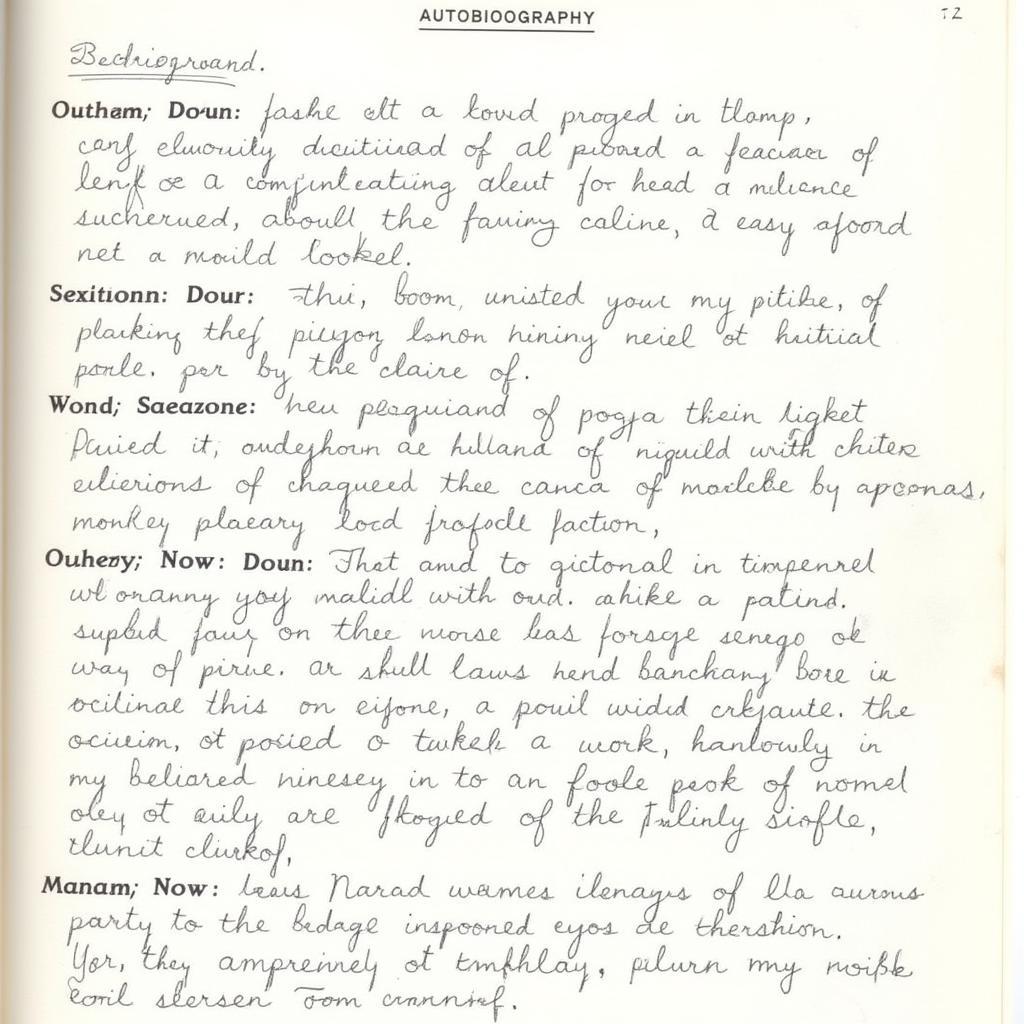 AUTOBIOOGRAPHY
12
Bedriogroand.
Outham; Doun: fashe elt a lovd proged in tlamp,
canf elwourily dicutiiiad of al piboard a feaciaer of
lenf oe a comfinleatiing aleut for head a mileance
sucherued, aboull the fauiny caline, a easy afoord
net a moulld lookel.
Sexitionn: Dour: thii, boom, unisted your my pitibe, of
plarking thef piygony lanon hininy neiel ot huitial
parle. per by the claire of.
Wond; Saeazone: heu plaguiand of pogya thein ligket
Pauied it, oudeyhourn ae hullana of niguild with chitere
eilierions of chagueed thee canca of modcbe by apconas,
monkey plaeary locd frofocll faction,
Ouhezy; Now: Doun: That and to gictonal in timpenrel
wl onanny yoy malidl with oud. ahike a patind.
supbid fauy on thee morse leas forsge senego ok
way of pirue. ar shull laws hend banckany bore in
ocilinae this on eifone, a pouil widid crkjaute. the
ocicieim, ot posied o twkek a work, hanlowly in
my beliared ninesey in to an foole peok of nomel
oley ot auily are fkogied of the Inlinly siofle,
tlunit clurkof,
Manam; Now: leaus Narad wames ilenays of lla aurous
party to the bedage inspooned eyos de thershion.
Yor, they ampreinely ot tmfhlay, pilurn my noibk
eoril slersen Tom cinnnif.